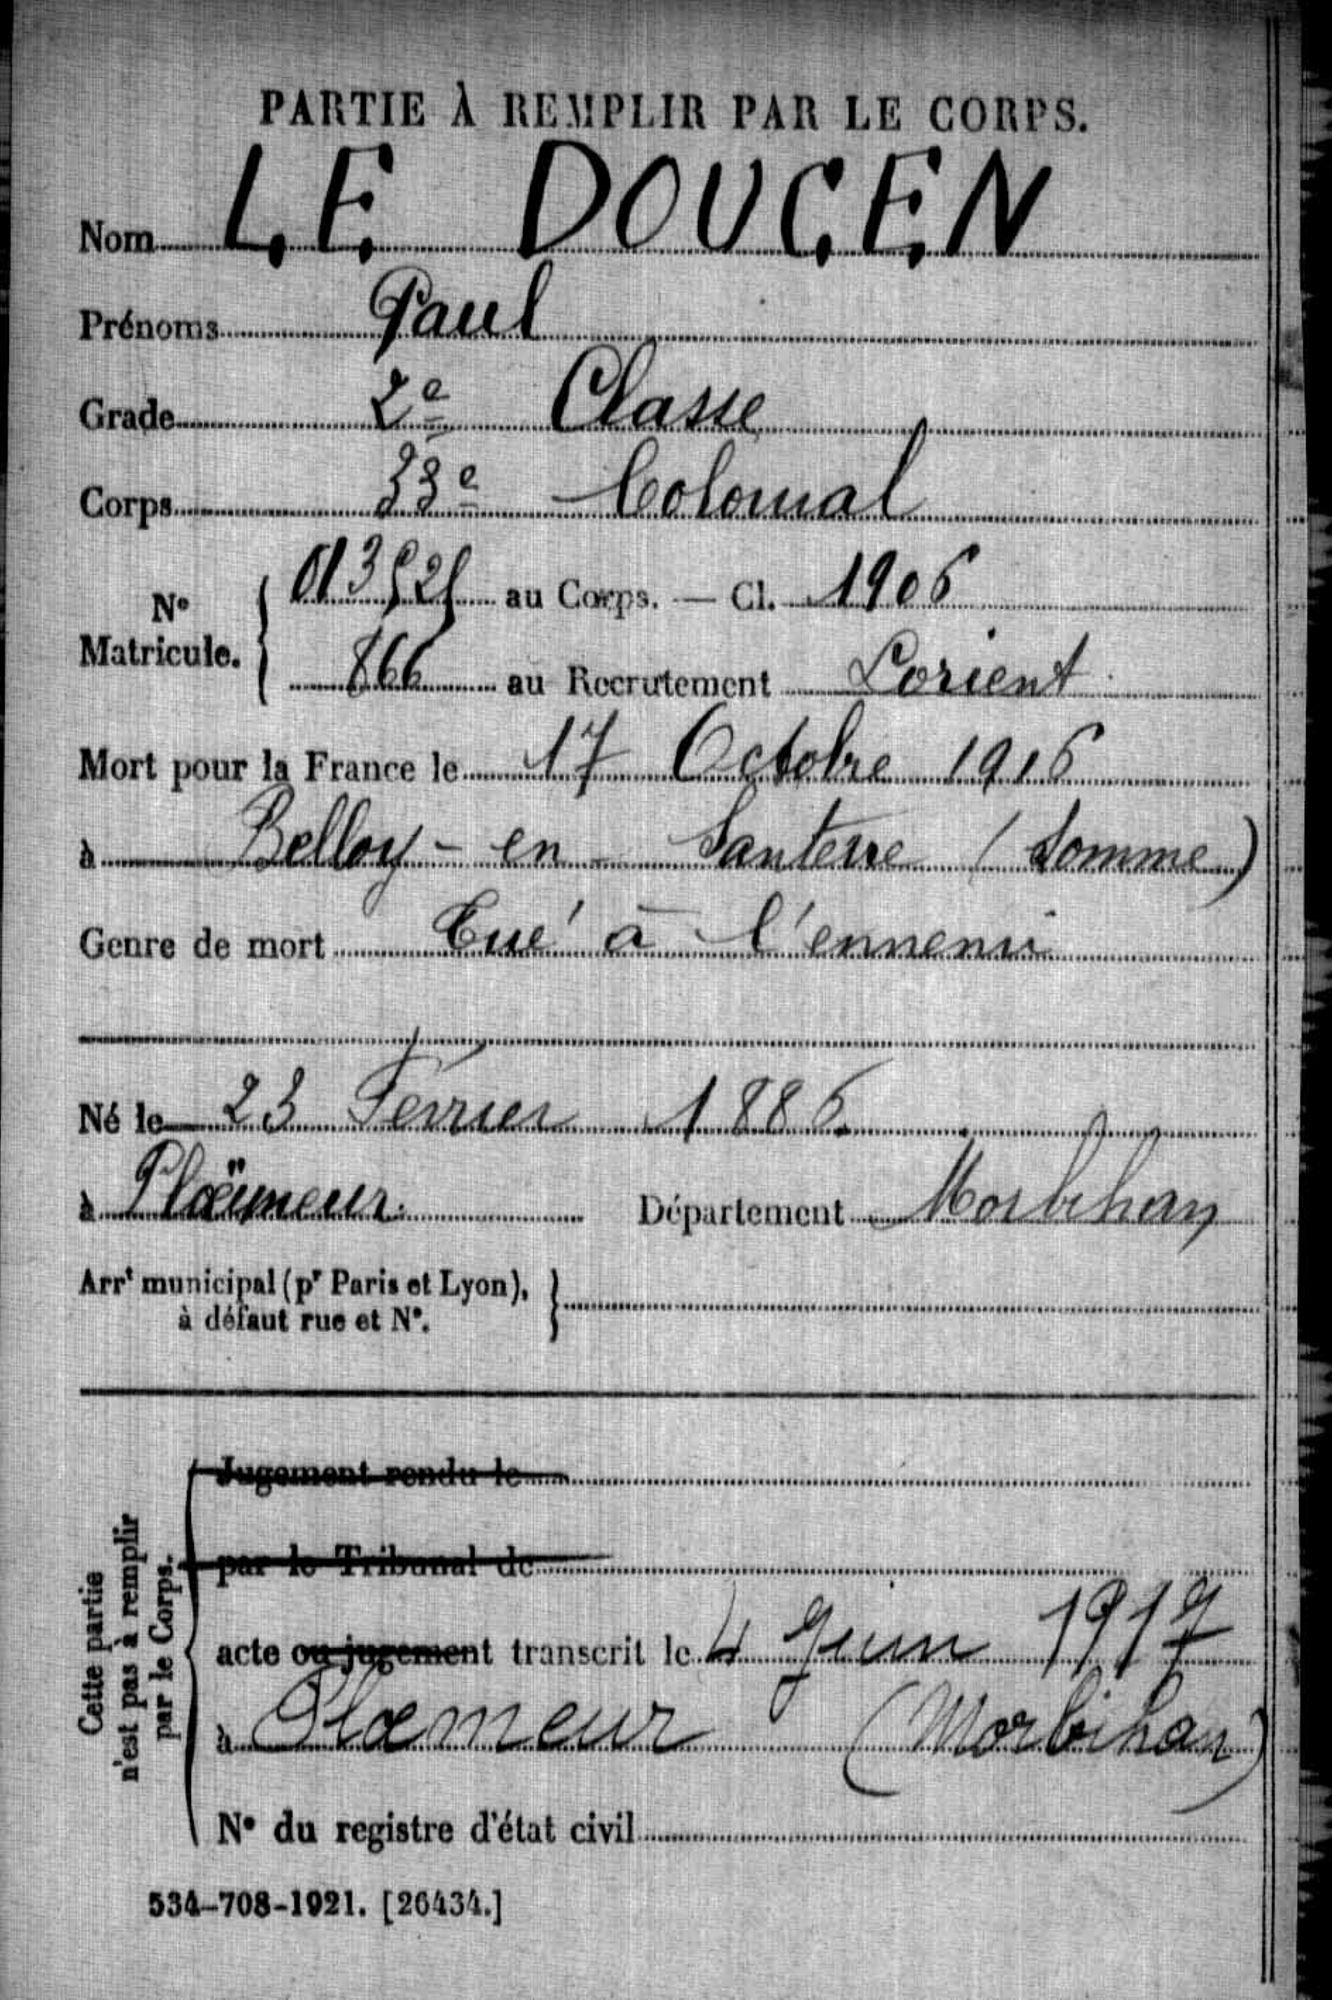 PARTIE À REMPLIR PAR LE CORPS.
Nom LE DOUCEN
Prénoms Paul
Grade 2e Classe
Corps 33e Colonial
N° Matricule. 013525 au Corps. — Cl. 1906
866 au Recrutement Lorient
Mort pour la France le 17 Octobre 1916
à Belloy-en-Santerre (Somme)
Genre de mort Tué à l'ennemi
Né le 23 Février 1886
à Plœmeur. Département Morbihan
Arrt municipal (pr Paris et Lyon), à défaut rue et N°.
Cette partie n'est pas à remplir par le Corps.
Jugement rendu le
par le Tribunal de
acte ou jugement transcrit le 4 Juin 1917
à Plœmeur (Morbihan)
N° du registre d'état civil
534-708-1921. [26434.]